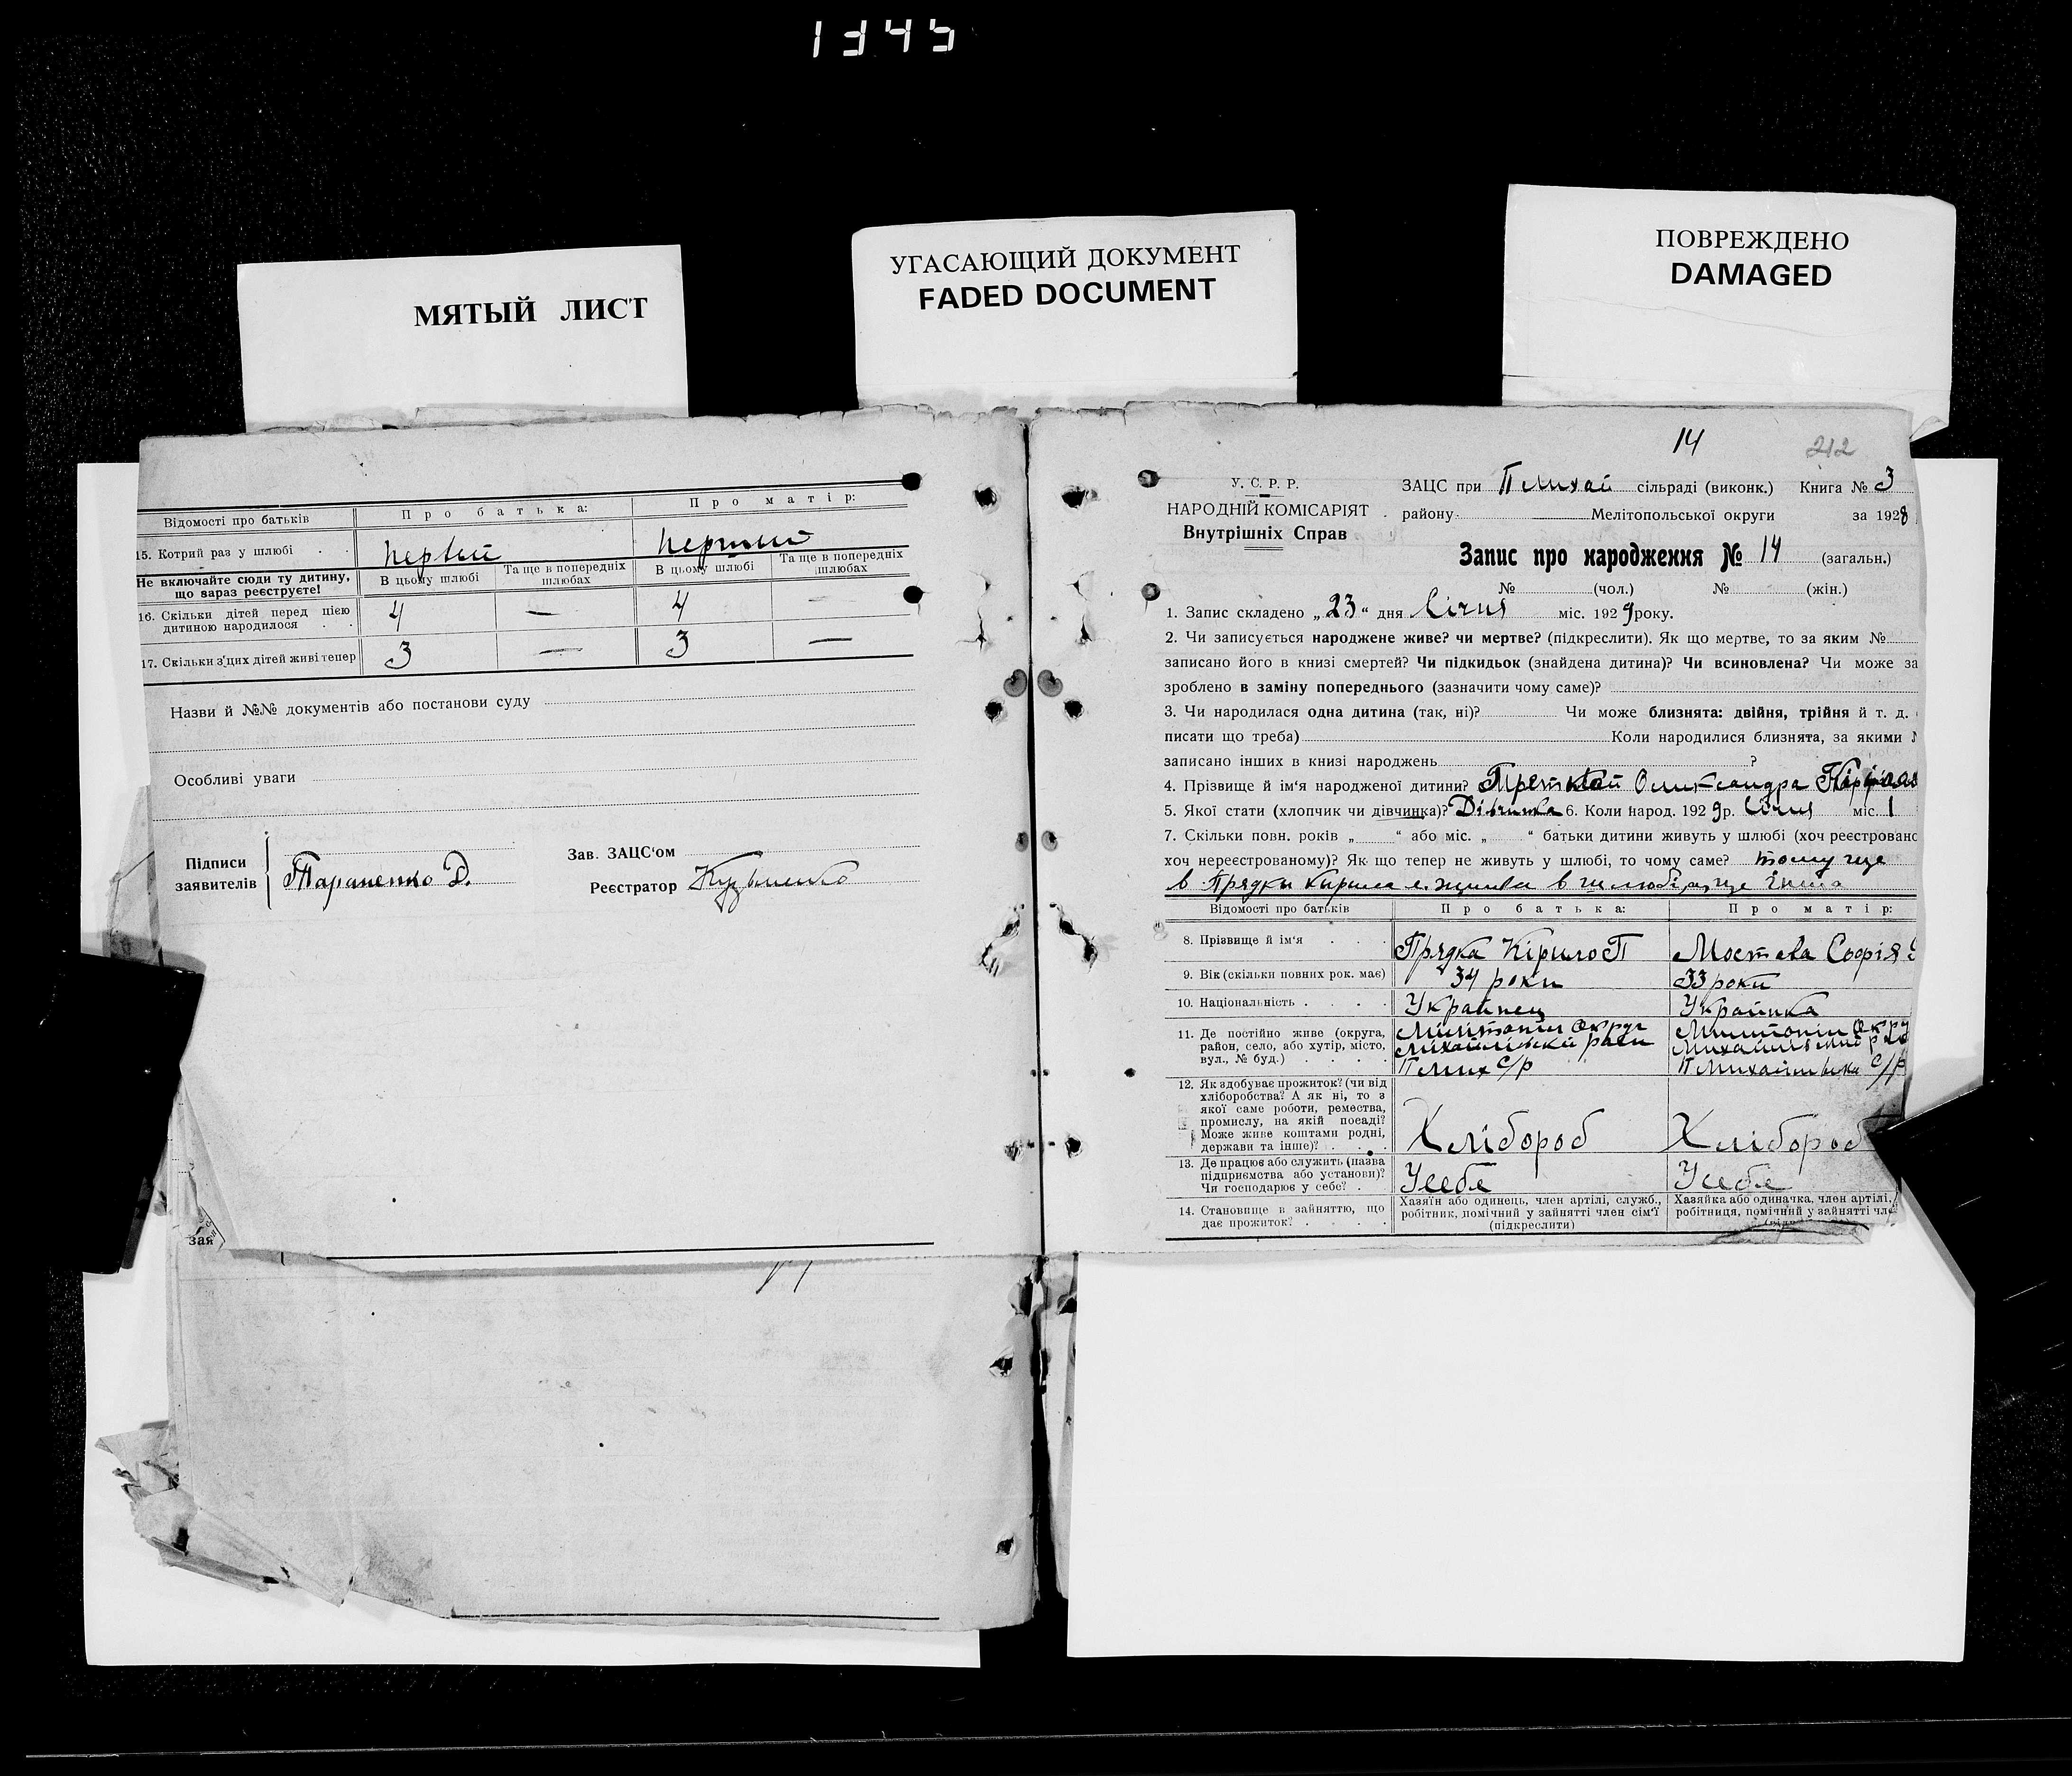 1345
МЯТЫЙ ЛИСТ
УГАСАЮЩИЙ ДОКУМЕНТ
FADED DOCUMENT
ПОВРЕЖДЕНО
DAMAGED
Відомості про батьків Про батька: Про матір:
15. Котрий раз у шлюбі . . первий перший
Не включайте сюди ту дитину, що вараз реєструєте! В цьому шлюбі Та ще в попередніх шлюбах В цьому шлюбі Та ще в попередніх шлюбах
16. Скільки дітей перед цією дитиною народилося . . 4 — 4 —
17. Скільки з'цих дітей живі тепер 3 — 3 —
Назви й №№ документів або постанови суду
Особливі уваги
Підписи заявителів Тараненко Д.
Зав. ЗАЦС'ом
Реєстратор Кузьменко
зая
14 212
У. С. Р. Р.
НАРОДНІЙ КОМІСАРІЯТ
Внутрішніх Справ
ЗАЦС при П Михай сільраді (виконк.) Книга № 3
району Мелітопольської округи за 1928
Запис про народження № 14 (загальн.)
№ (чол.) № (жін.)
1. Запис складено „23“ дня Січня міс. 1929 року.
2. Чи записується народжене живе? чи мертве? (підкреслити). Як що мертве, то за яким №
записано його в книзі смертей? Чи підкидьок (знайдена дитина)? Чи всиновлена? Чи може за
зроблено в заміну попереднього (зазначити чому саме)?
3. Чи народилася одна дитина (так, ні)? Чи може близнята: двійня, трійня й т. д.
писати що треба) Коли народилися близнята, за якими
записано інших в книзі народжень ?
4. Прізвище й ім'я народженої дитини? Олександра
5. Якої стати (хлопчик чи дівчинка)? Дівчинка 6. Коли народ. 1929 р. січня міс. 1
7. Скільки повн. років „ “ або міс. „ “ батьки дитини живуть у шлюбі (хоч реєстровано
хоч нереєстрованому)? Як що тепер не живуть у шлюбі, то чому саме? тому що
в Прядки Кирила в шлюбі
Відомості про батьків Про батька: Про матір:
8. Прізвище й ім'я . . . Прядка Кірило П Мостова Софія
9. Вік (скільки повних рок. має) 34 роки 33 роки
10. Національність . . . . Українец Українка
11. Де постійно живе (округа, район, село, або хутір, місто, вул., № буд.) . . . .
Округ Михайлівський район П Мих с/р
П Михайлівська с/р
12. Як здобуває прожиток? (чи від хліборобства? А як ні, то з якої саме роботи, ремества, промислу, на якій посаді? Може живе коштами родні, держави та інше)? . . . Хлібороб Хлібороб
13. Де працює або служить (назва підприємства або установи)? Чи господарює у себе? . Усебе Усебе
14. Становище в зайняттю, що дає прожиток? . . . .
Хазяїн або одинець, член артілі, служб., робітник, помічний у зайнятті член сім'ї (підкреслити)
Хазяйка або одиначка, член артілі, робітниця, помічний у зайнятті чле